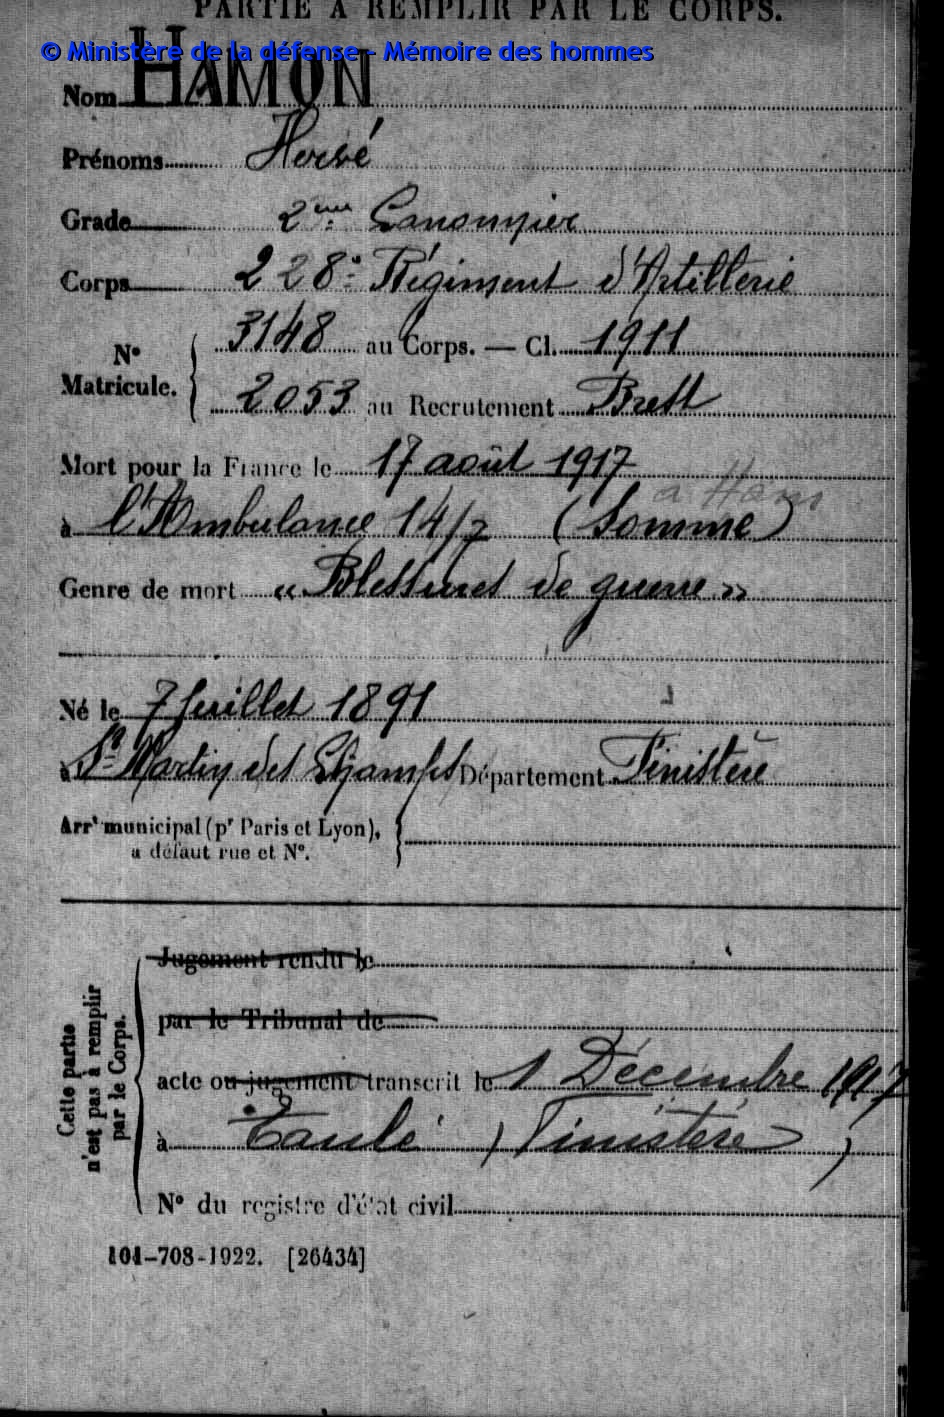 PARTIE A REMPLIR PAR LE CORPS.
© Ministère de la défense - Mémoire des hommes
Nom HAMON
Prénoms Hervé
Grade 2eme Canonnier
Corps 228e Régiment d'Artillerie
N° Matricule. 3148 au Corps. — Cl. 1911
2053 au Recrutement Brest
Mort pour la France le 17 août 1917
à Ham
à l'Ambulance 14/7 (Somme)
Genre de mort « Blessures de guerre »
Né le 7 Juillet 1891
à St Martin des Champs Département Finistère
Arrt municipal (pr Paris et Lyon), a défaut rue et N°.
Cette partie n'est pas à remplir par le Corps.
Jugement rendu le
par le Tribunal de
acte ou jugement transcrit le 1 Décembre 1917
à Taulé (Finistère)
N° du registre d'état civil
101-708-1922. [26434]